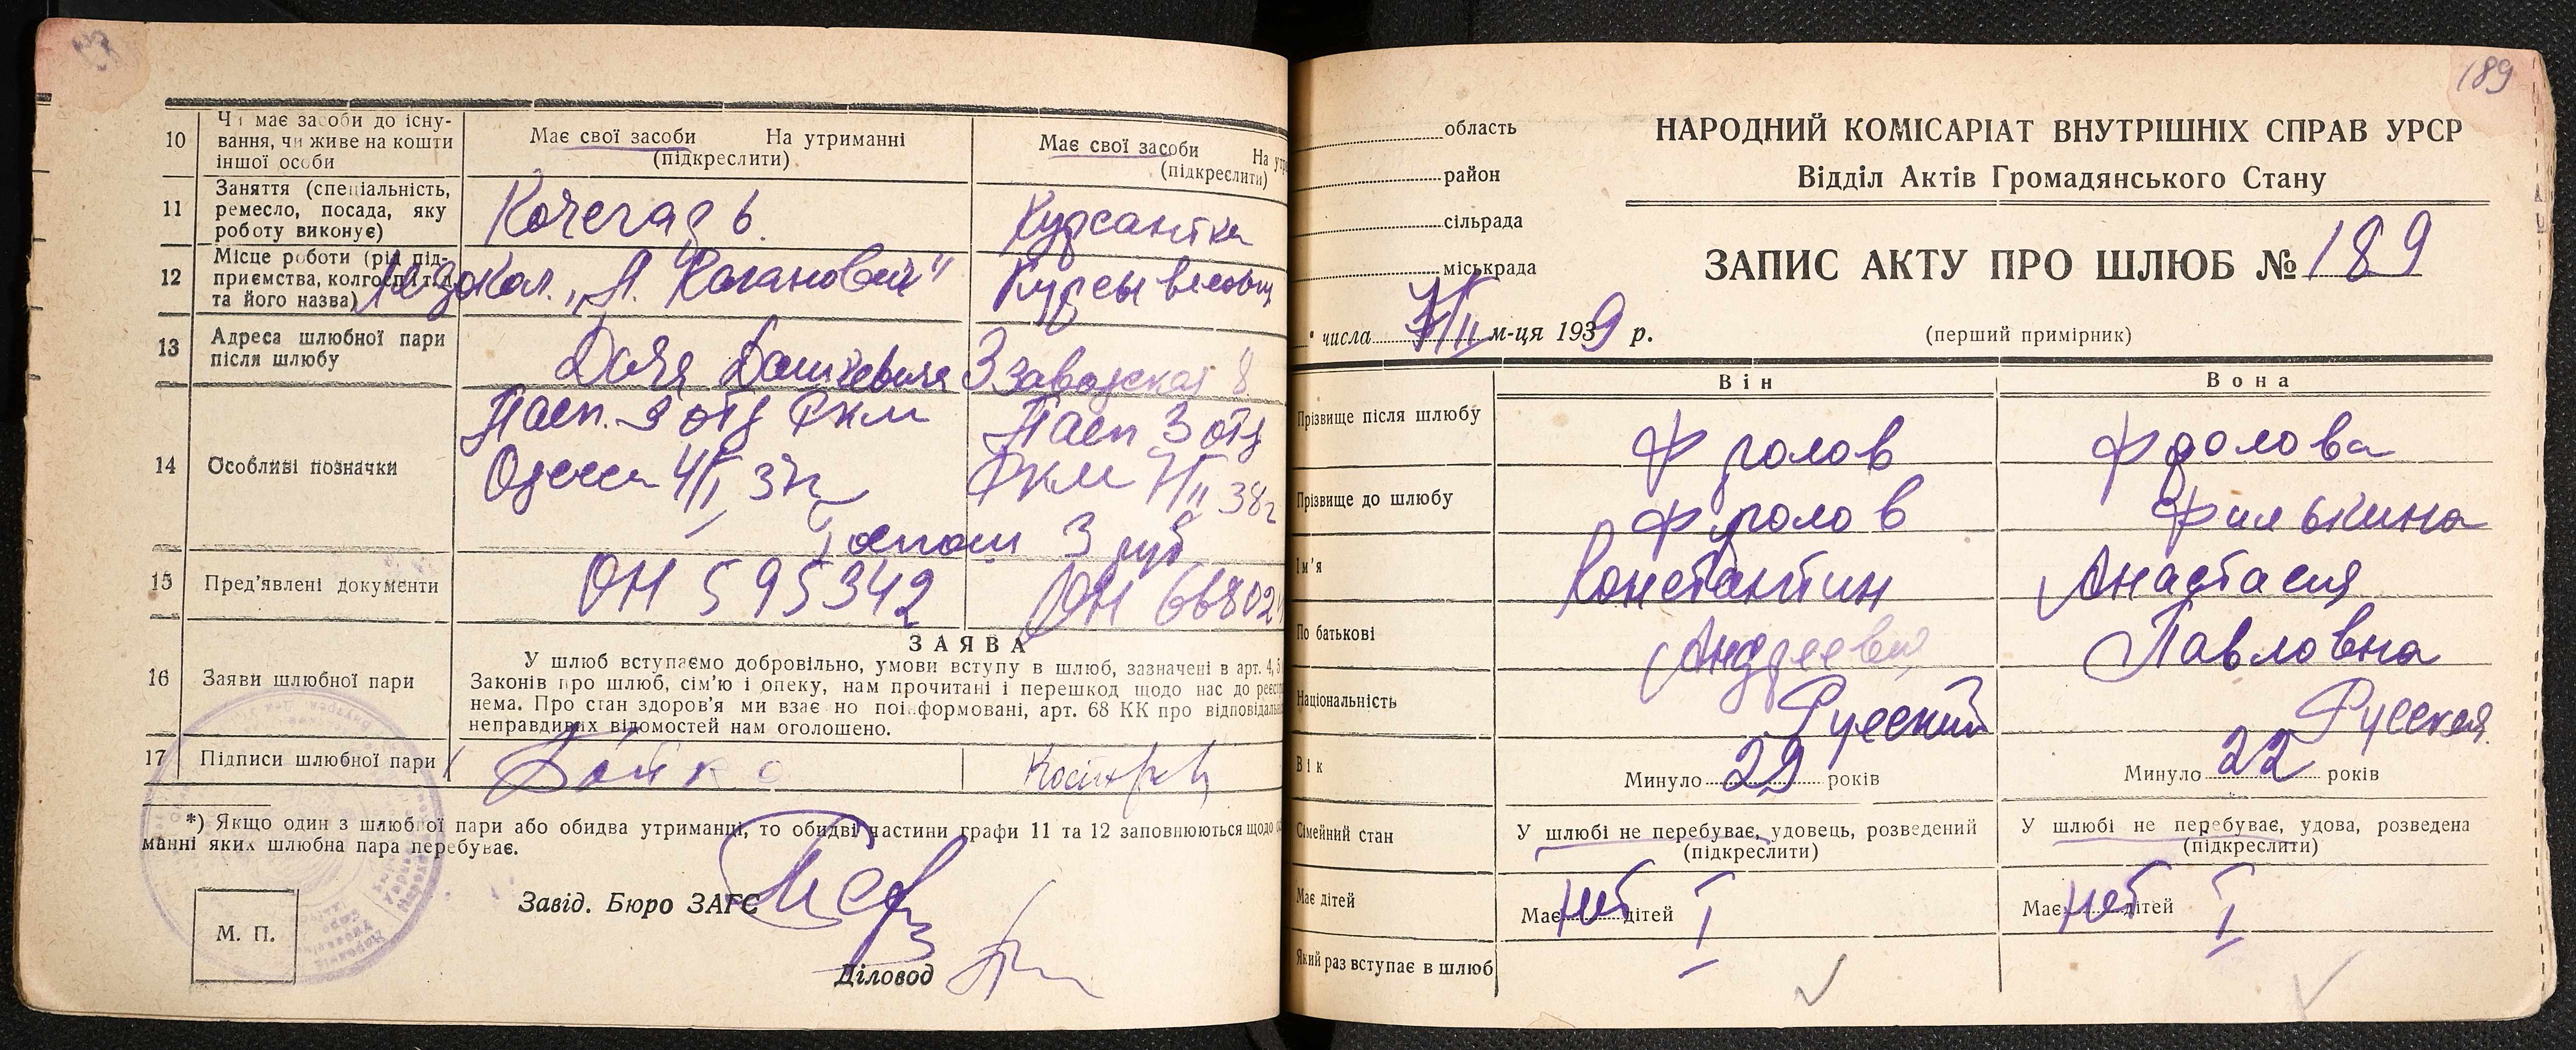 10
Чи має засоби до існу-
вання, чи живе на кошти
іншої особи
Має свої засоби На утриманні
(підкреслити)
Має свої засоби На
(підкреслити)
11
Заняття (спеціальність,
ремесло, посада, яку
роботу виконує)
Кочегар 6.
Курсантка
12
Місце роботи (рід під-
приємства, колгоспі т.
та його назва)
Ледокол. „Л. Каганович"
Курсы
13
Адреса шлюбної пари
після шлюбу
Дача 3 Заводская 8.
14
Особливі позначки
Пасп. 9 отд РКМ
Одесса 4/I 37г
Пасп 3 отд
РКМ 7/II 38г
Госпош 3 руб
15
Пред'явлені документи
ОН 595342
ОН 668024
16
Заяви шлюбної пари
ЗАЯВА
У шлюб вступаємо добровільно, умови вступу в шлюб, зазначені в арт. 4, 5
Законів про шлюб, сім'ю і опеку, нам прочитані і перешкод щодо нас до
нема. Про стан здоров'я ми взаємно поінформовані, арт. 68 КК про
неправдивих відомостей нам оголошено.
17
Підписи шлюбної пари
Бойко
*) Якщо один з шлюбної пари або обидва утриманці, то обидві частини графи 11 та 12 заповнюються щодо
манні яких шлюбна пара перебуває.
М. П.
Завід. Бюро ЗАГС
Діловод
189
область
район
сільрада
міськрада
НАРОДНИЙ КОМІСАРІАТ ВНУТРІШНІХ СПРАВ УРСР
Відділ Актів Громадянського Стану
ЗАПИС АКТУ ПРО ШЛЮБ № 189
числа 7/II м-ця 1939 р.
(перший примірник)
Він Вона
Прізвище після шлюбу Фролов Фролова
Прізвище до шлюбу Фролов Филькина
Ім'я Константин Анастасия
По батькові Андреевич Павловна
Національність Русский Русская
Вік Минуло 29 років Минуло 22 років
Сімейний стан
У шлюбі не перебуває, удовець, розведений
(підкреслити)
У шлюбі не перебуває, удова, розведена
(підкреслити)
Має дітей Має нет дітей Має нет дітей
Який раз вступає в шлюб I I